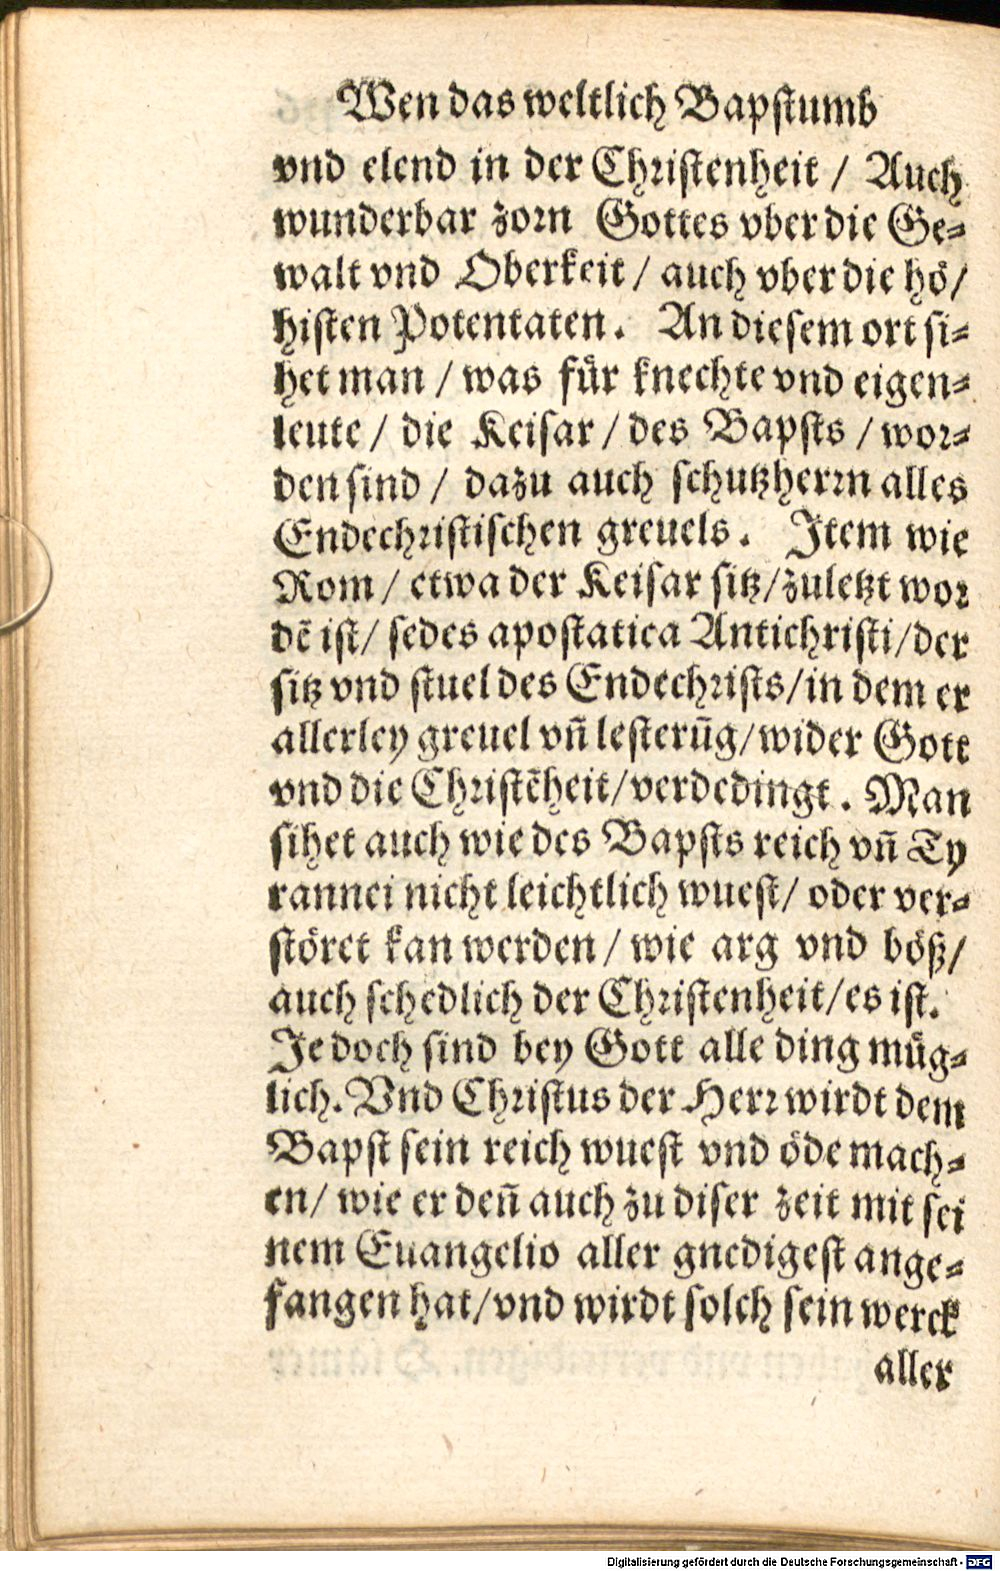 Wen das weltlich Bapstumb
vnd elend in der Christenheit / Auch
wunderbar zorn Gottes vber die Ge-
walt vnd Oberkeit / auch vber die hö/
histen Potentaten. An diesem ort si-
het man / was für knechte vnd eigen-
leute / die Keisar / des Bapsts / wor-
den sind / dazu auch schutzherrn alles
Endechristischen greuels. Item wie
Rom / etwa der Keisar sitz / zuletzt wor
dē ist / sedes apostatica Antichristi / der
sitz vnd stuel des Endechrists / in dem er
allerley greuel vn̄ lesterūg / wider Gott
vnd die Christēheit / verdedingt. Man
sihet auch wie des Bapsts reich vn̄ Ty
rannei nicht leichtlich wuest / oder ver-
störet kan werden / wie arg vnd böß /
auch schedlich der Christenheit / es ist.
Je doch sind bey Gott alle ding müg-
lich. Vnd Christus der Herr wirdt dem
Bapst sein reich wuest vnd öde mach-
en / wie er den̄ auch zu diser zeit mit sei
nem Euangelio aller gnedigest ange-
fangen hat / vnd wirdt solch sein werck
aller
Digitalisierung gefördert durch die Deutsche Forschungsgemeinschaft - DFG